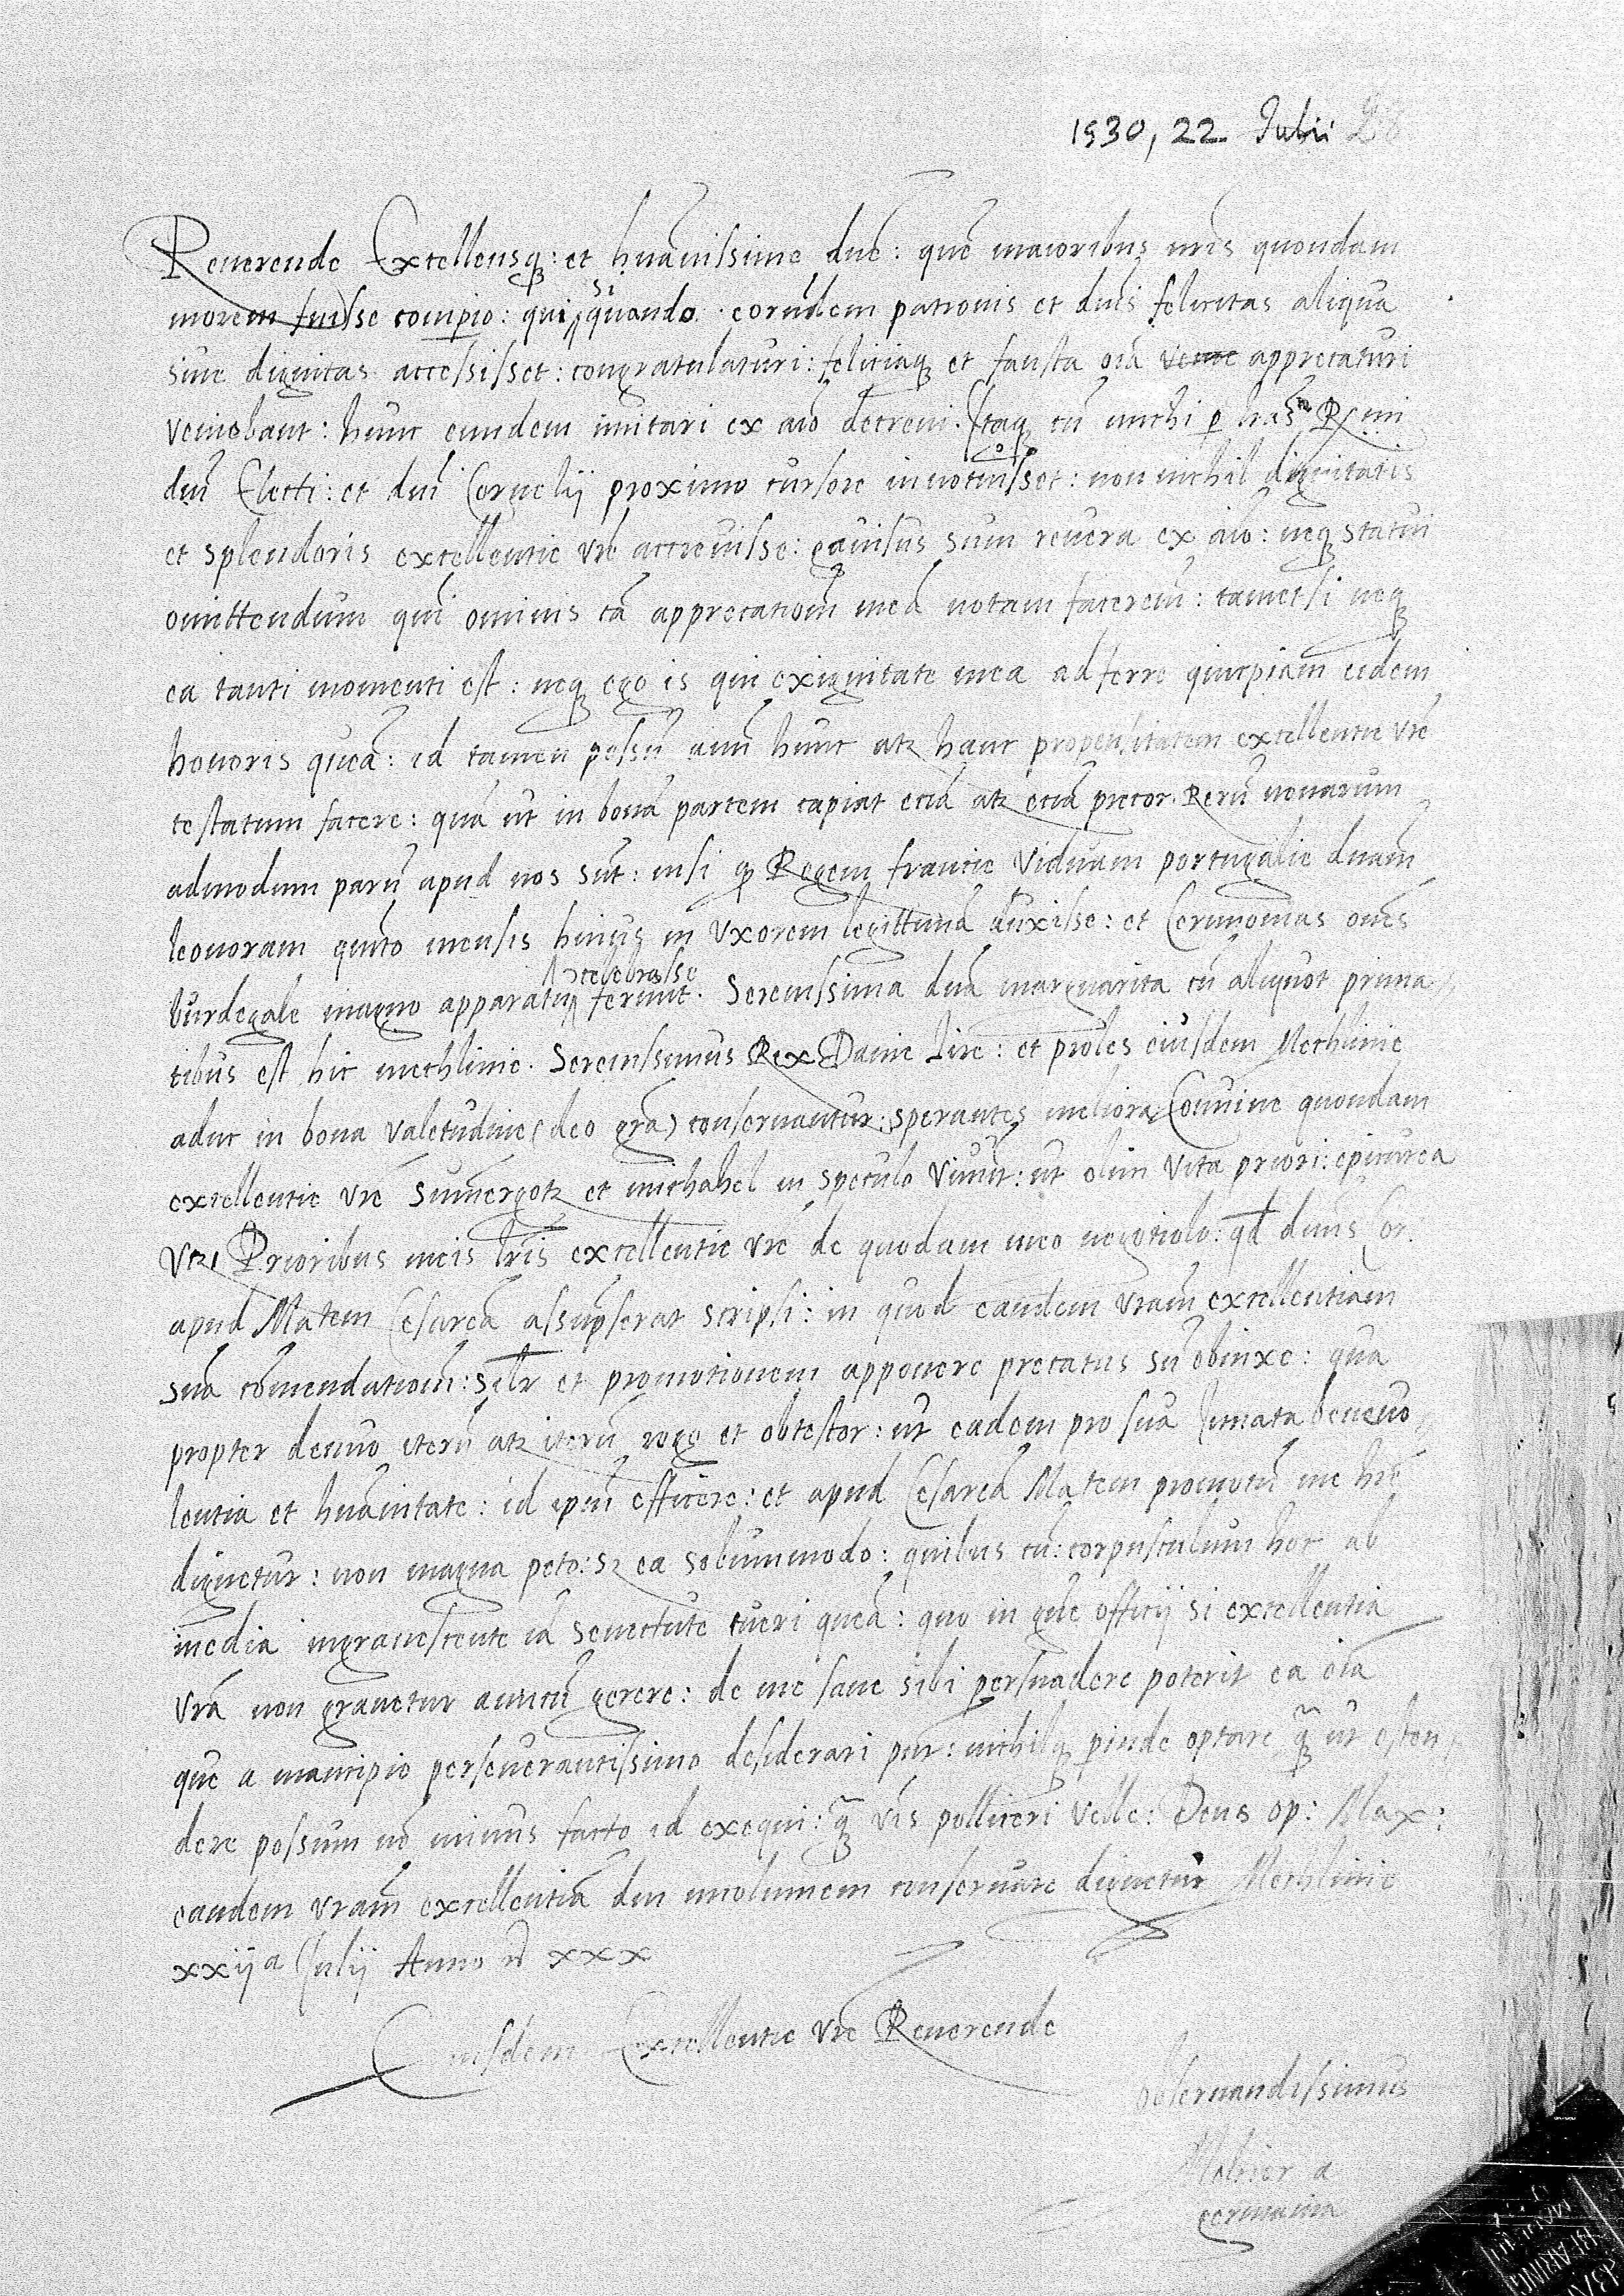 1530, 22 Iulii 28
Reuerende Excellensq: et huãnissime dnẽ: quẽ maioribus nris quondam
morem fuisse comperio: qui si quando eorũdem patronis et dnis felicitas aliqua
siue dignitas accessisset: congratulaturi: feliciaq et fausta oĩa appretaturi
veniebant: hunc eundem imitari ex aĩo decreui. Itaq cũ michi p lrãs Rmi
dnĩ Electi: et dnĩ Cornelij proximo cursore innotuisset: non nichil dignitatis
et splendoris excellentie vrẽ accreuisse: gauisus sum reuera ex aĩo: neq statui
omittendum quĩ ominis tã apprecationẽ meã notam facerem: tametsi neq
ea tanti momenti est: neq ego is qui exiguitate mea adferre quicpiam eidem
honoris queã: id tamen possũ aĩm hunc atz hanc propensitatem excellentie vrẽ
testatum facere: quã ut in bonã partem capiat eciã atz eciã precor. Rerũ nouarum
admodum parũ apud nos sũt: nisi q Regem francie Viduam portugalie dnam
leonoram quĩto mensis huius in Uxorem legittimã duxisse: et Cerimonias oẽs
burdegale magno apparatu celebrasse ferunt. Serenissima dnã margarita cũ aliquot prima
tibus est hic mechlinie. Serenissimus Rex Danie Lire: et proles eiusdem Mechlinie
adhuc in bona valetudine (deo grã) conseruantur: sperantes meliora Conuiue quondam
excellentie vrẽ et michahel in speculo viuũt: ut olim vita priori: epicurea
Prioribus meis lris excellentie vrẽ de quodam meo negotiolo: qd dnus Cor.
apud Matem Cesareã assũpserat scripsi: in quod eandem vram excellentiam
suã cõmendationẽ: silr et promotionem apponere precatus sũ obinxe: qua
propter denuo iterũ atz iterũ rogo et obtestor: ut eadem pro sua Innata beneuo
lentia et huãnitate: id ipm̃ efficere: et apud Cesareã Matem promotũ me hrẽ
dignetur: non magna peto: sz ea solummodo: quibus cũ: corpusculum hoc ab
inedia ingrauescente iã senectute tueri queã: quo in gñe officij si excellentia
vrã non grauetur amicũ gerere: de me sane sibi persuadere poterit ea oĩa
que a mancipio perseuerantissimo desiderari pnt: nichilq pinde optare q̃ ut osten
dere possum nõ minus facto id exequi: q̃ vis polliceri velle: Deus op: Max:
eandem vram excellentiã diu incolumem conseruare dignetur Mechlinie
xxija Julij Anno xxx
Eiusdem Excellentie vre Reuerende
obseruandissimus
Melcior a
germania